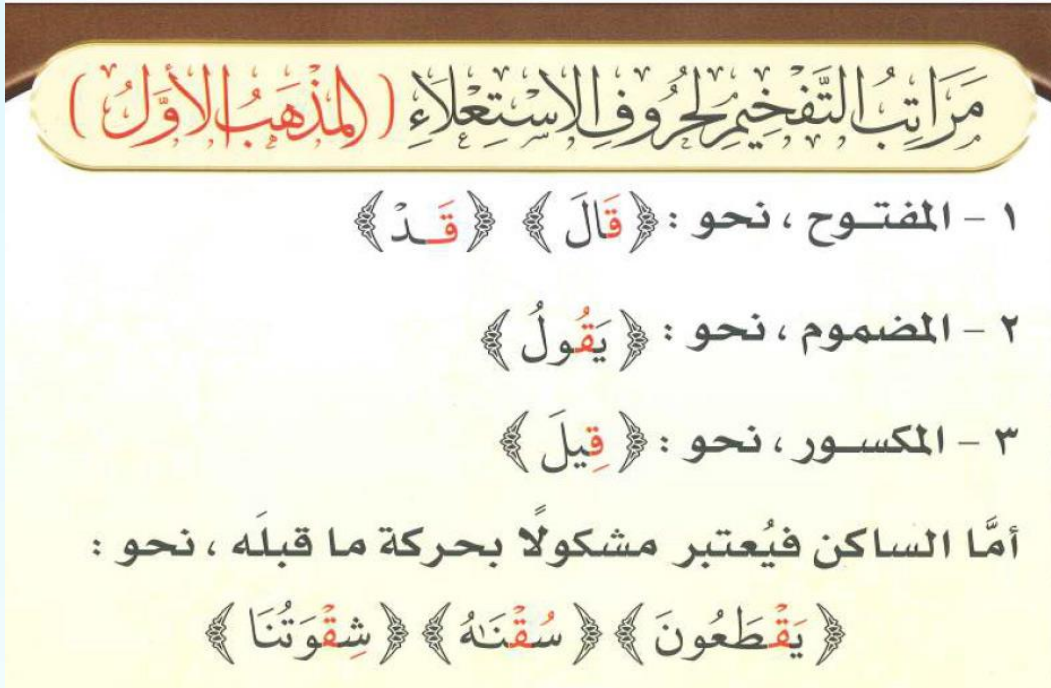 مَرَاتِبُ التَّفْخِيمِ لِحُرُوفِ الِاسْتِعْلَاءِ ( المَذْهَبُ الأَوَّلُ )
١ – المفتـوح ، نحو : ﴿ قَالَ ﴾ ﴿ قَـدْ ﴾
٢ – المضموم ، نحو : ﴿ يَقُولُ ﴾
٣ – المكسـور ، نحو : ﴿ قِيلَ ﴾
أمَّا الساكن فيُعتبر مشكولًا بحركة ما قبلَه ، نحو :
﴿ يَقْطَعُونَ ﴾ ﴿ سُقْنَـٰهُ ﴾ ﴿ شِقْوَتُنَا ﴾